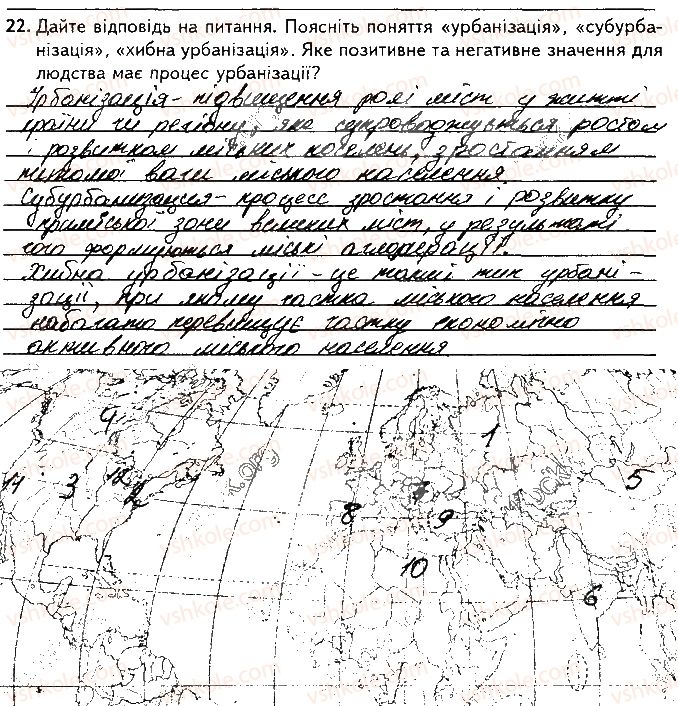 22. Дайте відповідь на питання. Поясніть поняття «урбанізація», «субурба-
нізація», «хибна урбанізація». Яке позитивне та негативне значення для
людства має процес урбанізації?
Урбанізація - підвищення ролі міст у житті
країни чи регіону, яке супроводжується ростом
і розвитком міських поселень, зростанням
питомої ваги міського населення.
Субурбанизация - процесс зростання і розвитку
приміської зони великих міст, у результаті
чого формуються міські агломерації.
Хибна урбанізації - це такий тип урбані-
зації, при якому частка міського населення
набагато перевищує частку економічно
активного міського населення
4
1
11 3 12 2
7
5
8
9
10
6
vshkole.com